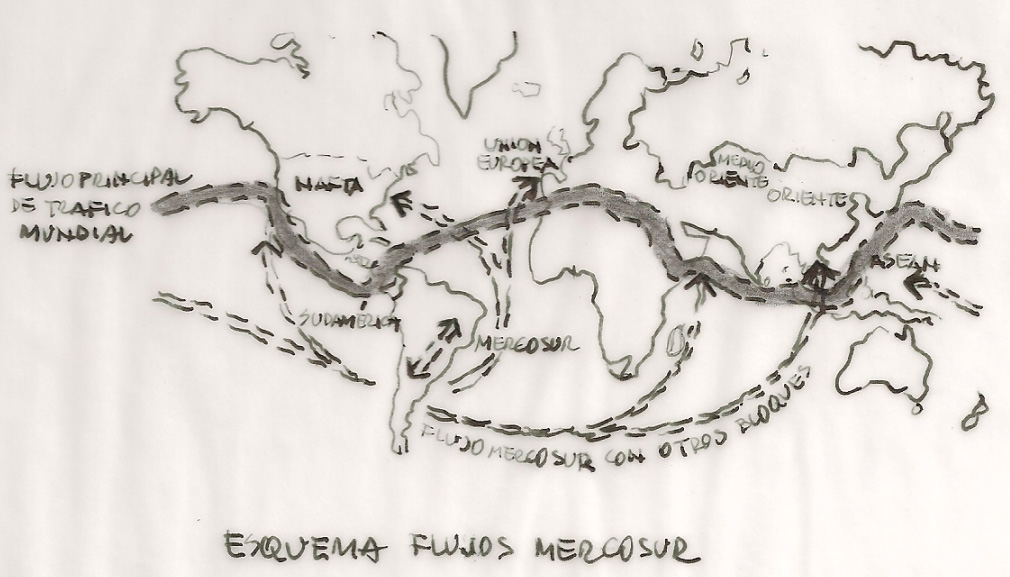 UNION
EUROPEA
MEDIO
ORIENTE
FLUJO PRINCIPAL
DE TRAFICO
MUNDIAL
NAFTA
ORIENTE
ASEAN
SUDAMERICA
MERCOSUR
FLUJO MERCOSUR CON OTROS BLOQUES
ESQUEMA FLUJOS MERCOSUR